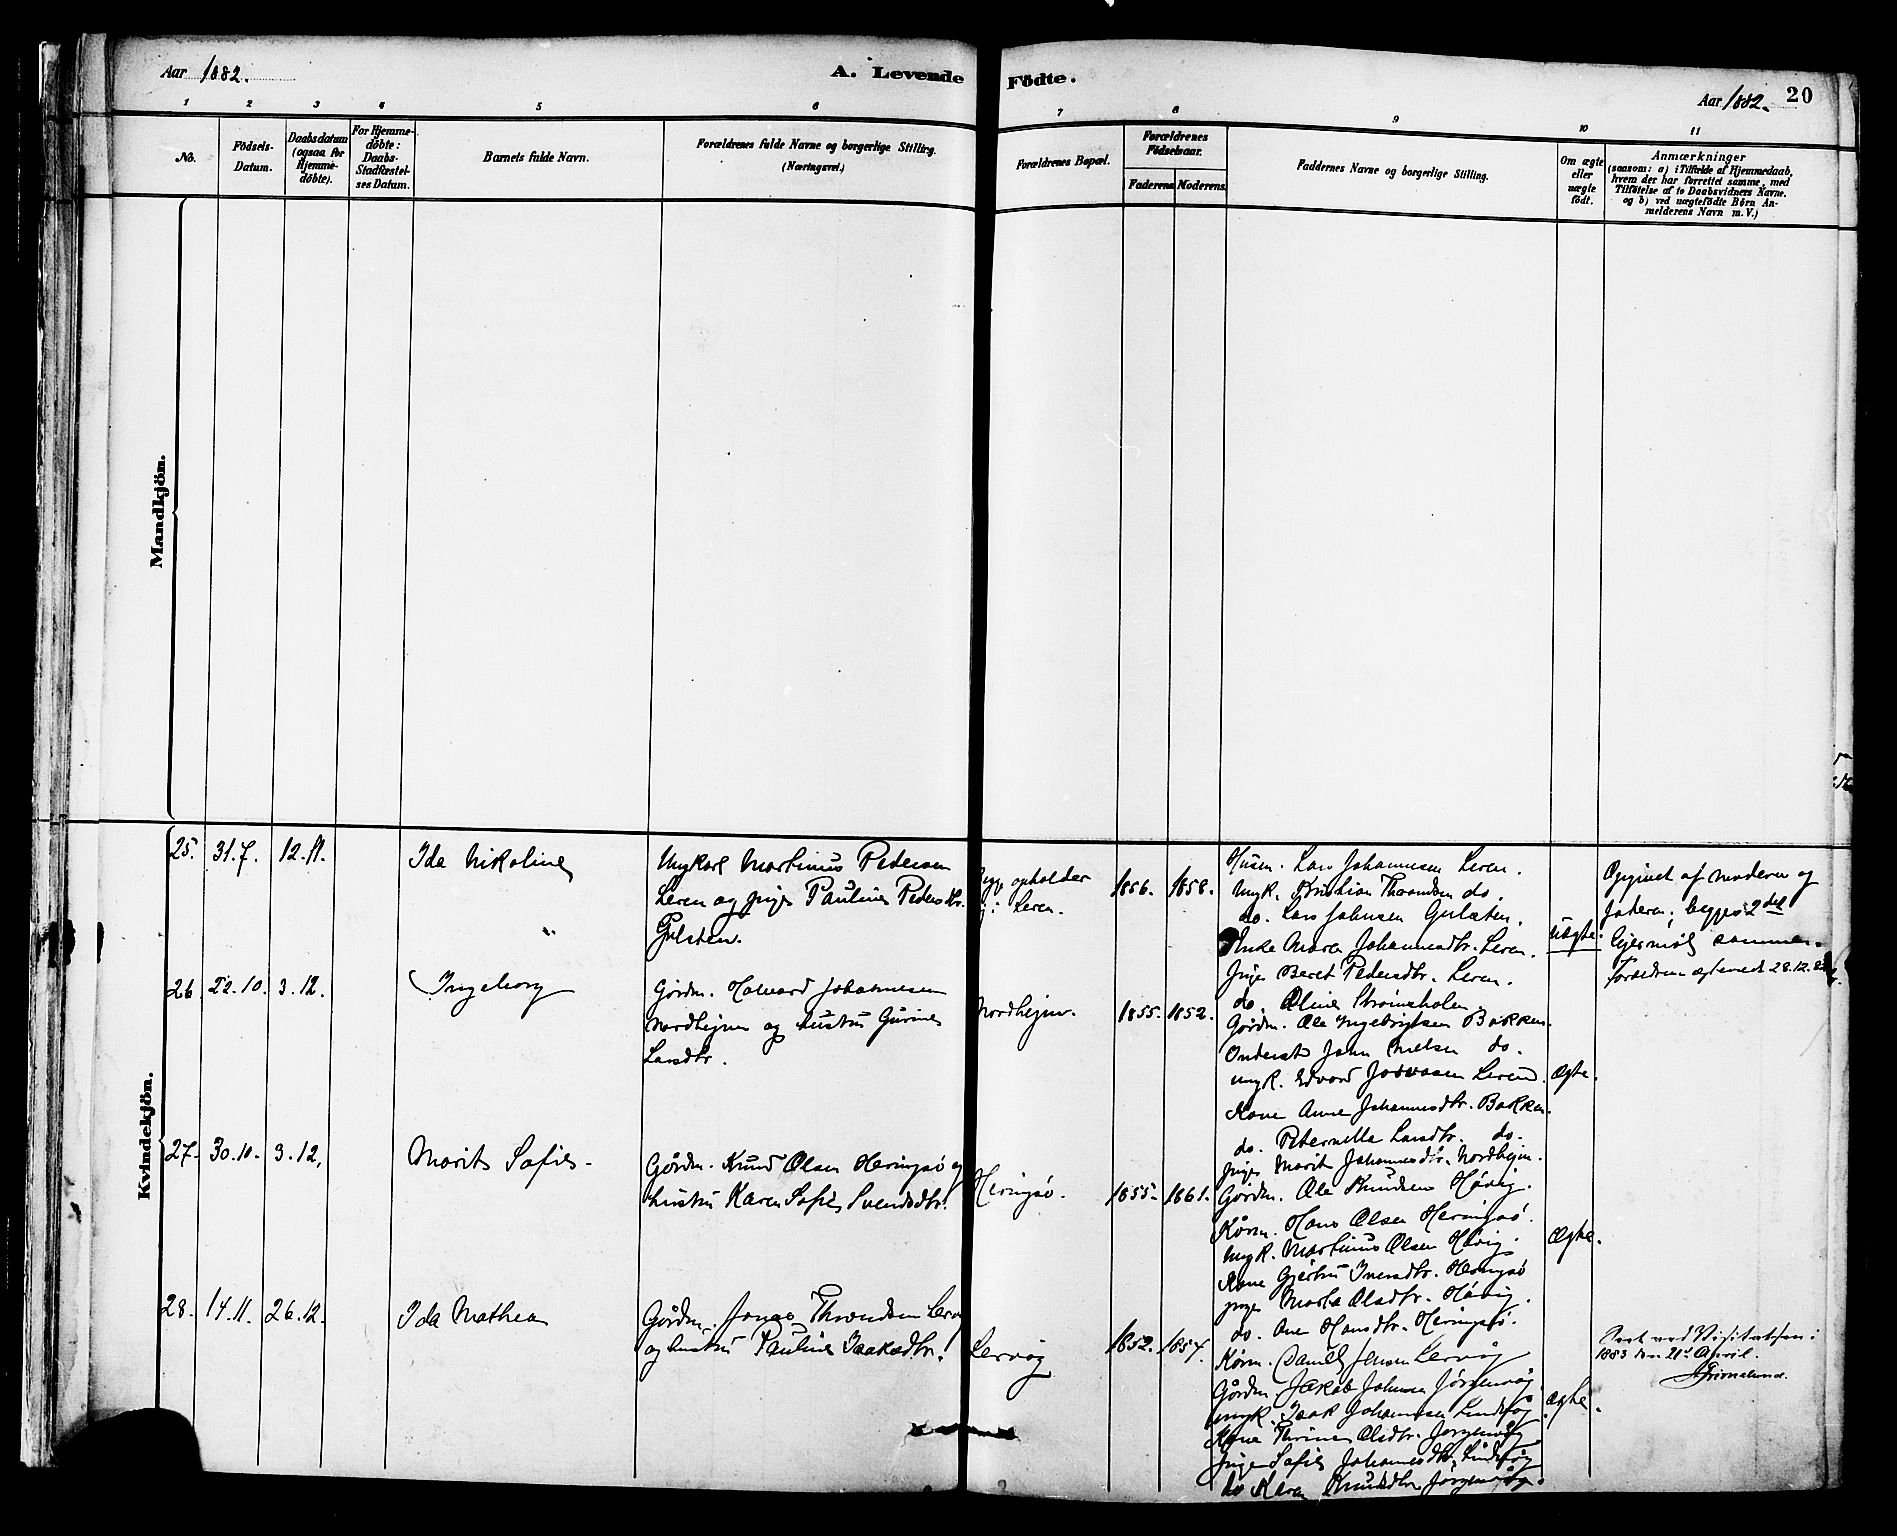 Aar 1882.
A. Levende Födte.
Aar 1882. 20
1 2 3 4 5 6 7 8 9 10 11
No.
Födsels-
Datum.
Daabsdatum
(ogsaa for
Hjemme-
döbte).
For Hjemme-
döbte:
Daabs-
Stadfæstel-
ses Datum.
Barnets fulde Navn.
Forældrenes fulde Navne og borgerlige Stilling.
(Næringsvei.)
Forældrenes Bopæl.
Forældrenes
Födselsaar.
Faderens. Moderens.
Faddernes Navne og borgerlige Stilling.
Om ægte
eller
uægte
födt.
Anmærkninger
(saasom: a) i Tilfælde af Hjemmedaab,
hvem der har forrettet samme, med
Tilföielse af to Daabsvidners Navne.
og b) ved uægtefödte Börn An-
melderens Navn m. V.)
Mandkjön.
Kvindekjön.
25. 31.7. 12.11.
Ida Nikoline
Ungkarl Martinus Pedersen
Leren og Pige Pauline Pedersdtr.
opholder
i Leren.
1856. 1858.
Husm. Lars Johannesen Leren.
Ungk. Kristian Throndsen do.
do. Lars Johnsen
Enke Maren Johannesdtr. Leren.
Pige Beret Pedersdtr. Leren.
do. Oline Strömsholm
Uægte.
Opgivet af moderen og
faderen; begges 2det
Leiermål sammen.
Forældrene ægteviede 28.12.
26. 22.10. 3.12.
Ingeborg
Gårdm. Halvard Johannesen
Nordhejm og hustru Gurine
Larsdtr.
Nordhejm.
1855. 1852.
Gårdm. Ole Ingebrigtsen Bakken.
John Nielsen do.
Ungk. Edvard Leren.
Kone Anne Johannesdtr. Bakken.
do. Peternella Larsdtr. do.
Pige Marit Johannesdtr. Nordhejm.
Ægte.
27. 30.10. 3.12.
Marit Sofie
Gårdm. Knud Olsen Heringsö og
hustru Karen Sofie Svendsdtr.
Heringsö.
1855. 1861.
Gårdm. Ole Knudsen Håvig.
Kårm. Hans Olsen Heringsö.
Ungk. Martinus Olsen Håvig.
Kone Gjertru Iversdtr. Heringsö
Pige Marta Olsdtr. Håvig.
do. Ane Hansdtr. Heringsö.
Ægte.
28. 14.11. 26.12.
Ida Mathea
Gårdm. Jonas Throndsen Lervåg
og hustru Pauline Isaksdtr.
Lervåg
1852. 1857.
Kårm. Daniel Jensen Lervåg
Gårdm. Jakob Johnsen Jörgenvåg
Ungk. Isak Johannesen Lindvåg
Kone Thrine Olsdtr. Jörgenvåg
Pige Sofie Johannesdtr. Lindvåg
do Karen Knudsdtr Jörgenvåg.
Ægte.
Seet ved Visitatsen i
1883 den 21de April.
Grimelund.